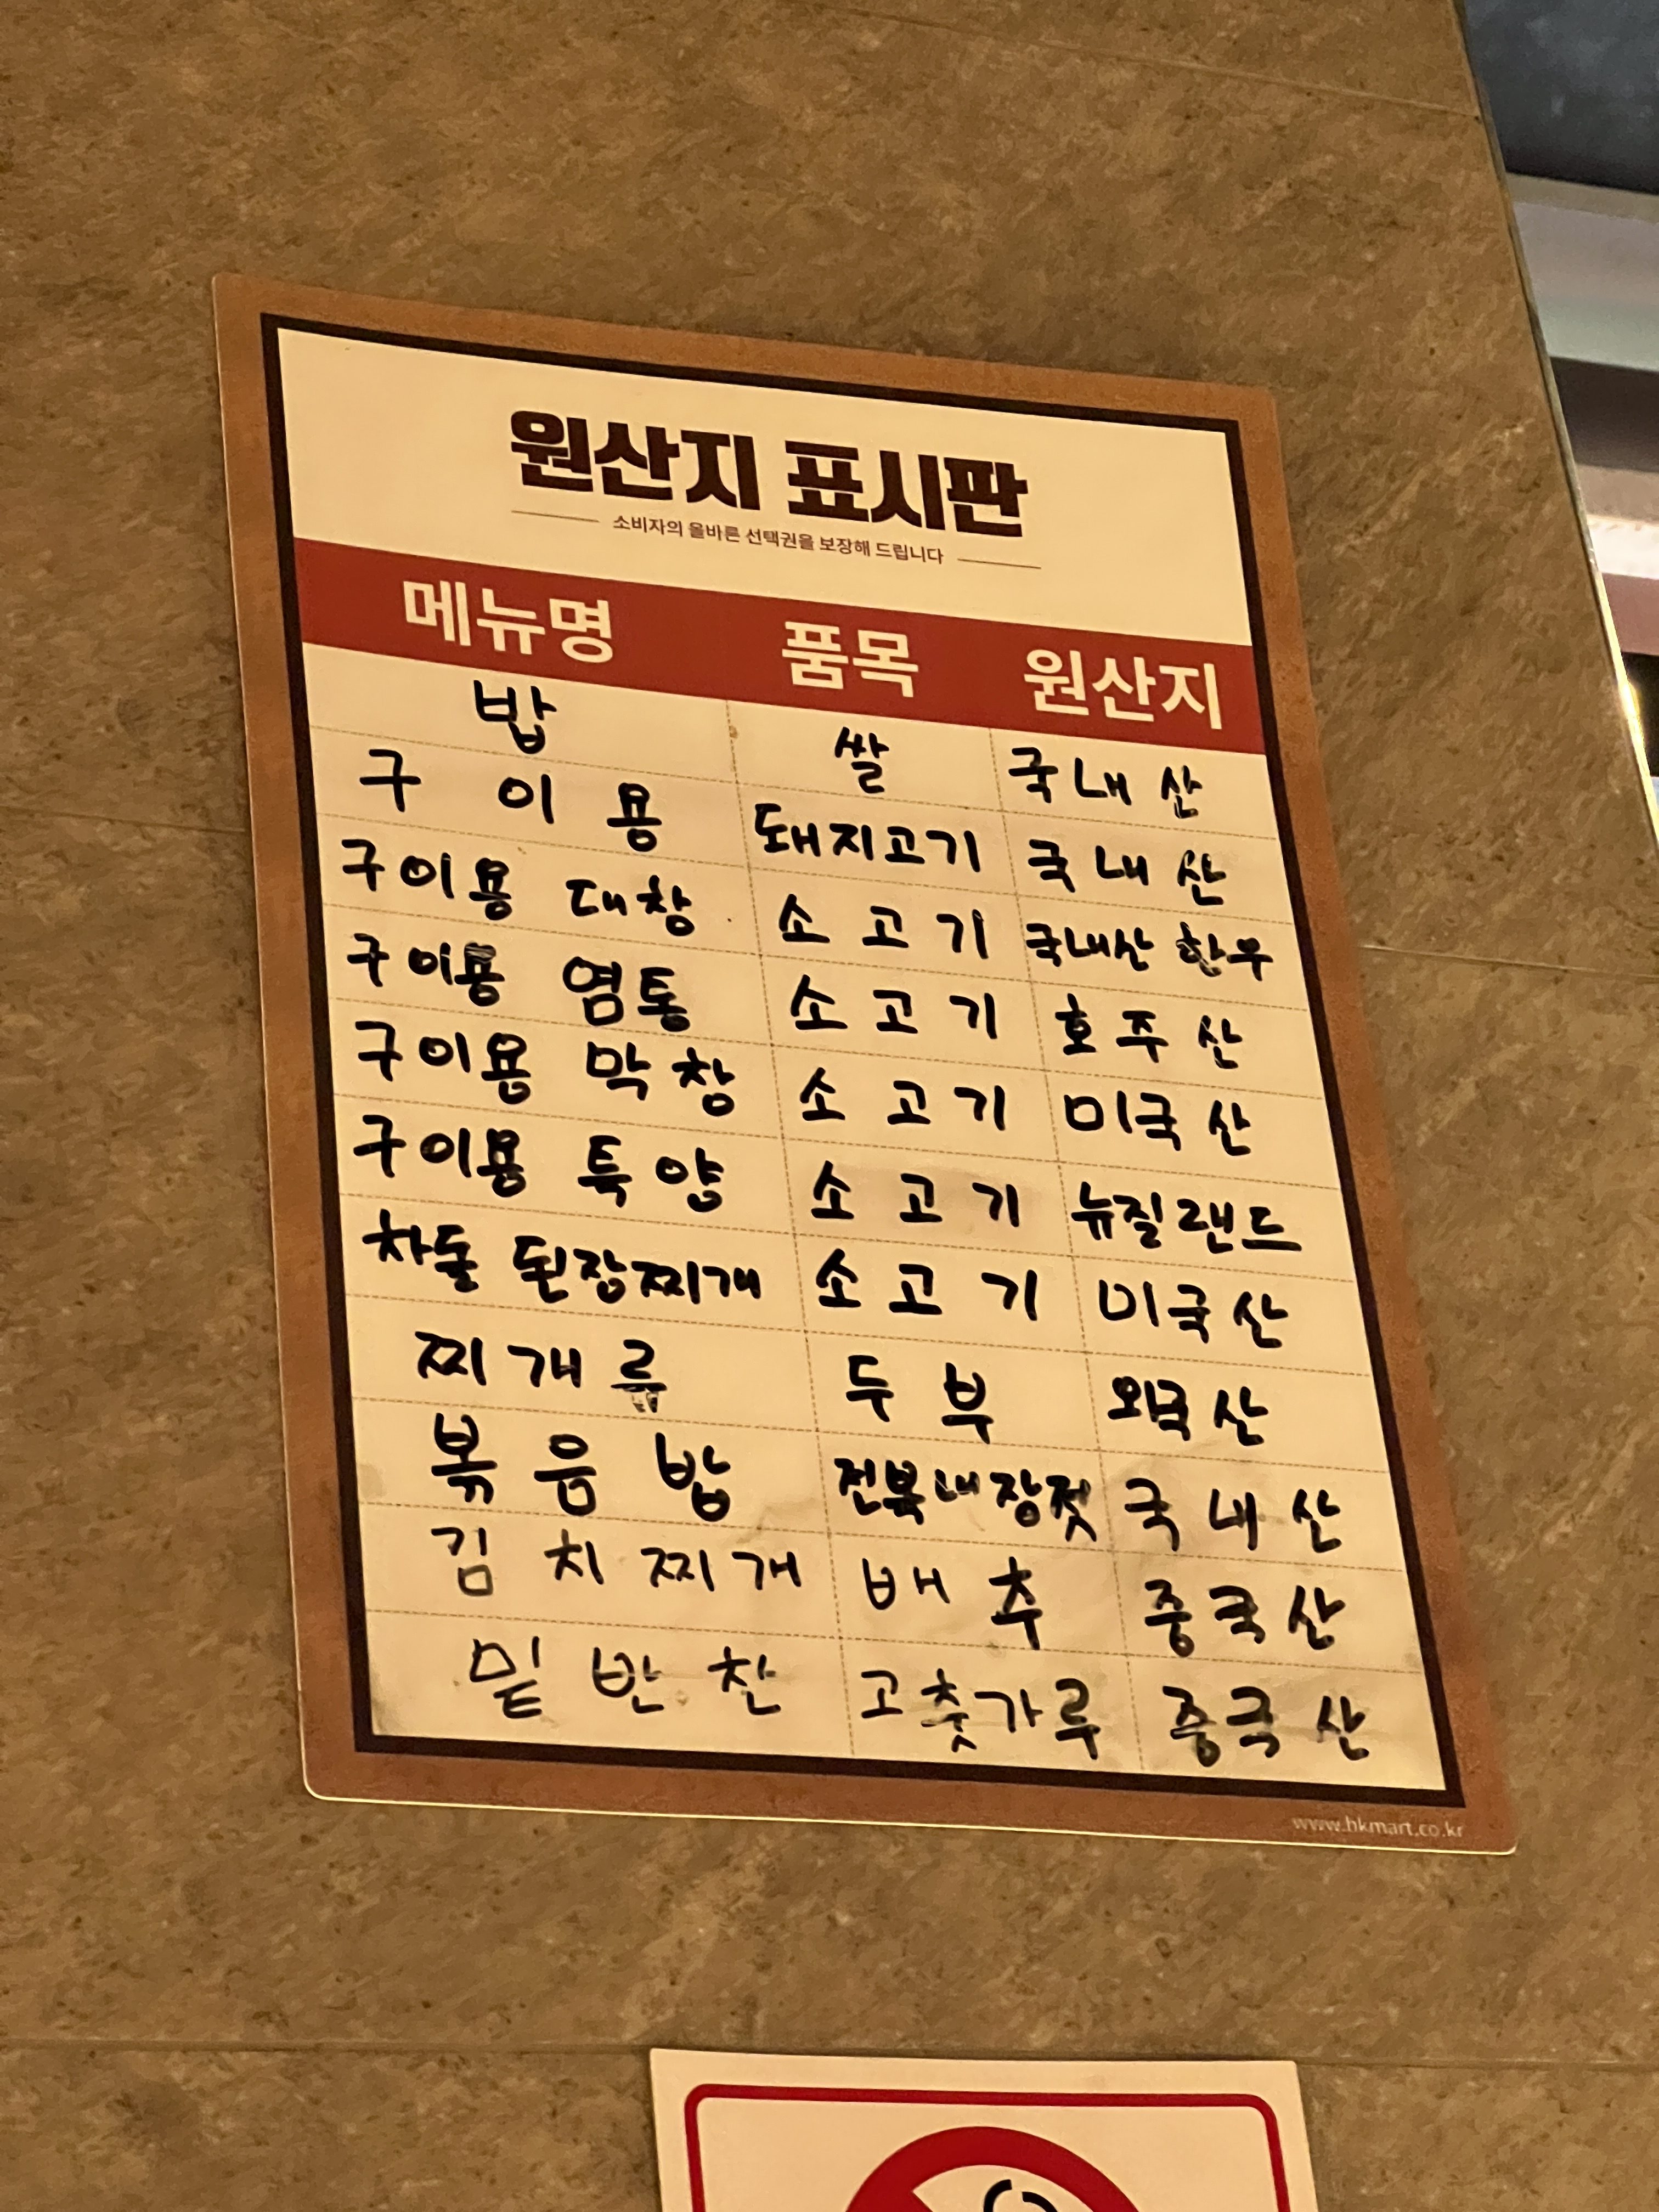 원산지 표시판
소비자의 올바른 선택권을 보장해 드립니다
메뉴명 품목 원산지
밥 쌀 국내산
구이용 돼지고기 국내산
구이용 대창 소고기 국내산 한우
구이용 염통 소고기 호주산
구이용 막창 소고기 미국산
구이용 특양 소고기 뉴질랜드
차돌 된장찌개 소고기 미국산
찌개류 두부 외국산
볶음밥 전복내장젓 국내산
김치찌개 배추 중국산
밑반찬 고춧가루 중국산
www.hkmart.co.kr